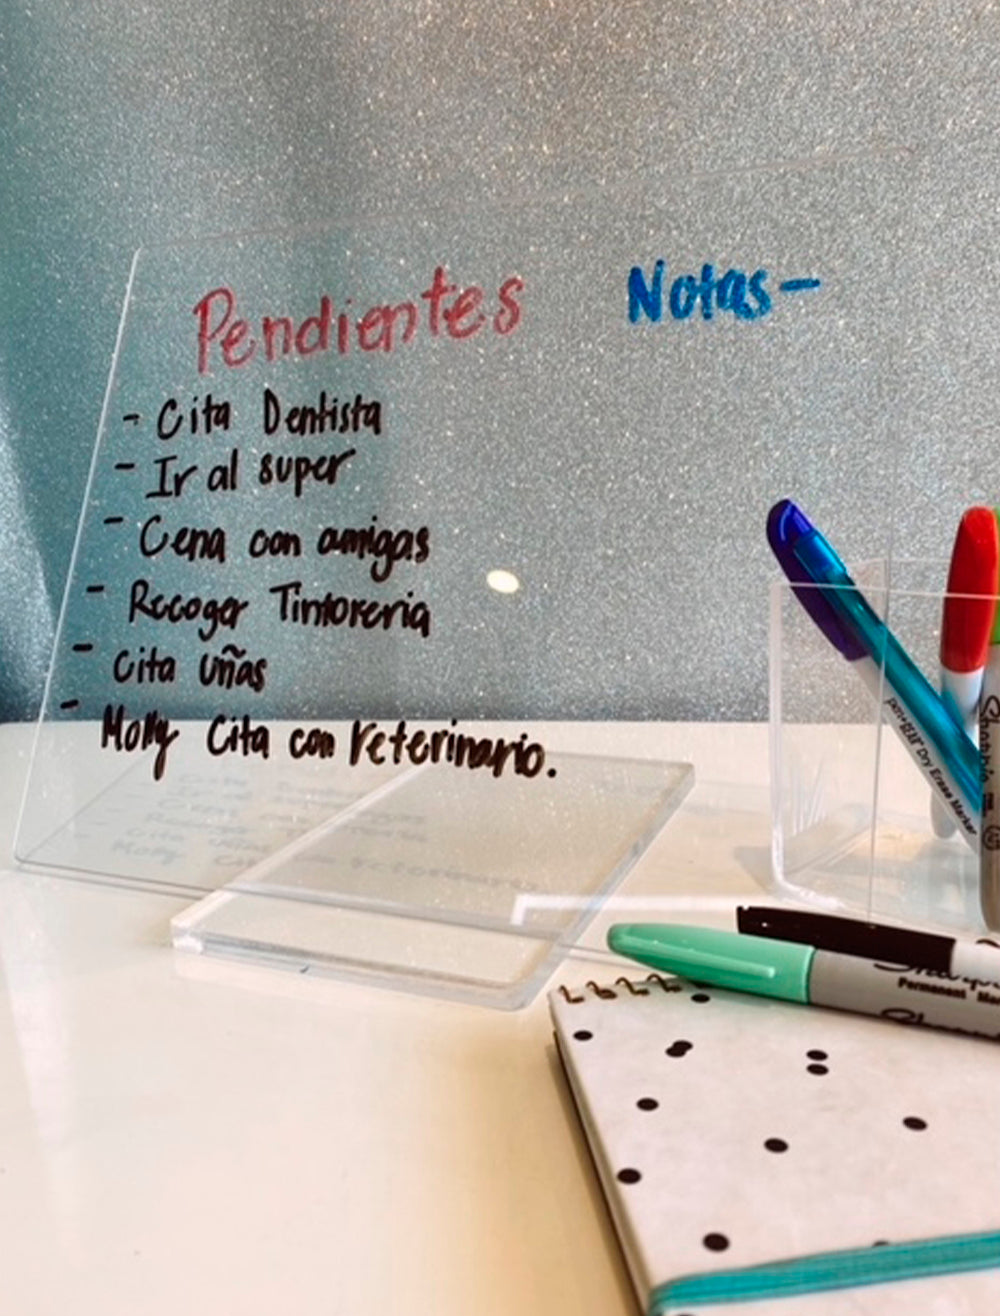 Pendientes
Notas-
- Cita Dentista
- Ir al super
- Cena con amigas
- Recoger Tintoreria
- Cita uñas
- Molly Cita con Veterinario.
Dry Erase Marker
Sharpie
Sharpie
Permanent